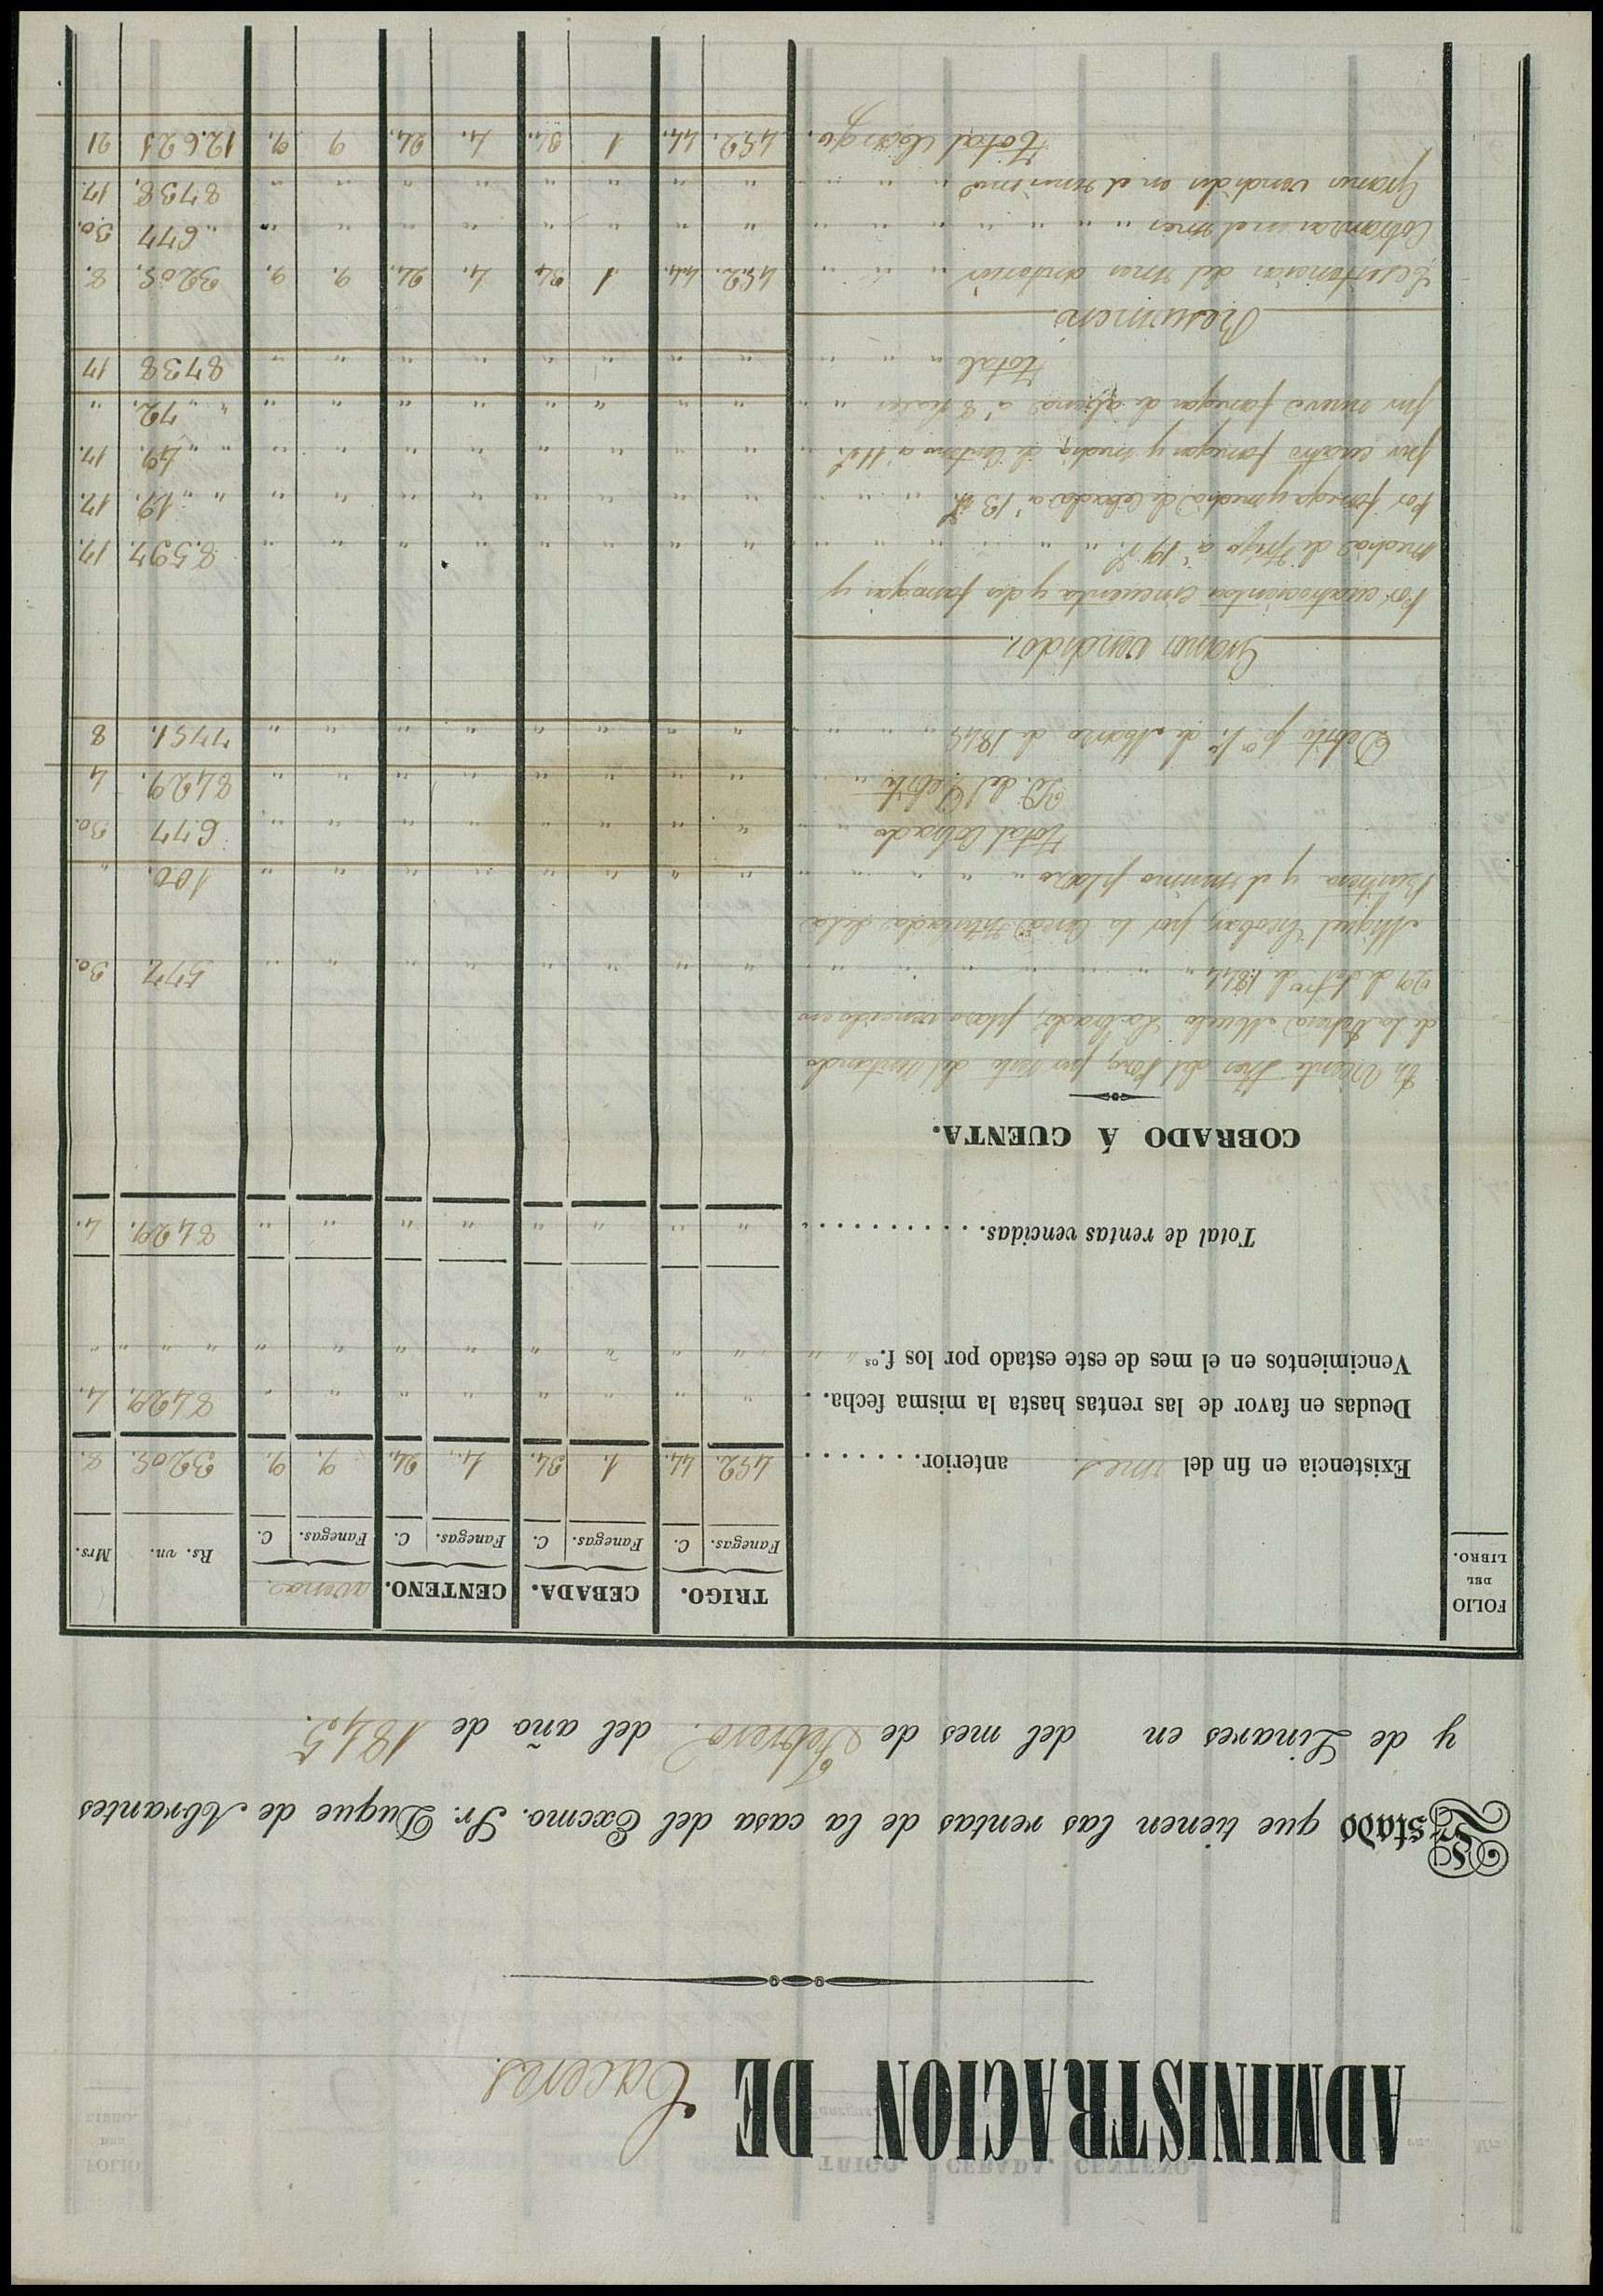 ADMINISTRACION DE Caceres.
Estado que tienen las rentas de la casa del Excmo. Sr. Duque de Abrantes
y de Linares en del mes de Febrero. del año de 1845.
FOLIO DEL LIBRO. TRIGO. CEBADA. CENTENO. avena.
Fanegas. C. Fanegas. C. Fanegas. C. Fanegas. C. Rs. vn. Mrs.
Existencia en fin del mes. anterior........ 452. 44. 1. 34. 4. 24. 9. 9. 3209. 8.
Deudas en favor de las rentas hasta la misma fecha. . " " " " " " " " 8429. 4.
Vencimientos en el mes de este estado por los f.os " " " " " " " " " " " " "
Total de rentas vencidas............. " " " " " " " " 8429. 4.
COBRADO Á CUENTA.
de la Dehesa Labrado, plazo vencido en
29 de de 1844 " " " " " " " " " " " 577 30.
Miguel Escobar, por la de la
y el mismo plazo " " " " " " " " " " " 100. "
Total Cobrado " " " " " " " " " 677 30.
Yd. del Debito " " " " " " " " " 8429. 4
Debito pa. 1.o de Marzo de 1845 " " " " " " " " " " 7751. 8
Granos vendidos.
Por cuatrocientas cincuenta y dos fanegas y
media de Trigo a 19 r. " " " " " " " " " " " 8.597. 17.
Por fanega y media de Cebada a 13 r. " " " " " " " " " " 19. 17.
por cuatro fanegas y media de Centeno a 11 r. " " " " " " " " 49. 17.
por nueve fanegas de abena a 8 reales " " " " " " " " " 72. "
Total " " " " " " " " " " 8738 17
Resumen
Existencia del mes anterior " " " 452. 44. 1 34 4. 24. 9. 9. 3209. 8.
Cobranzas en el mes " " " " " " " " " " " " 677 30.
Granos vendidos en el mismo " " " " " " " " " " " 8738. 17.
Total Cargo. 452. 44. 1 34. 4. 24. 9 9. 12.625 21